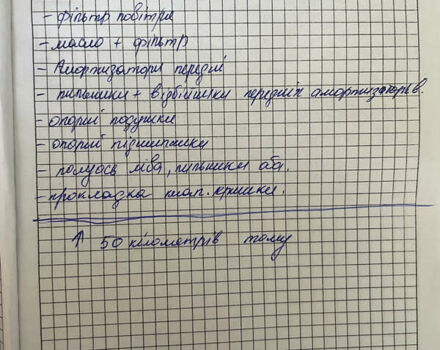 - фільтр повітря
- масло + фільтр
- Амортизатори передні
- пильники + відбійніки передніх амортизаторів.
- опорні подушки
- опорні підшипники
- полуось ліва, пильники оба.
- прокладка клап. кришки.
↑ 50 кілометрів тому